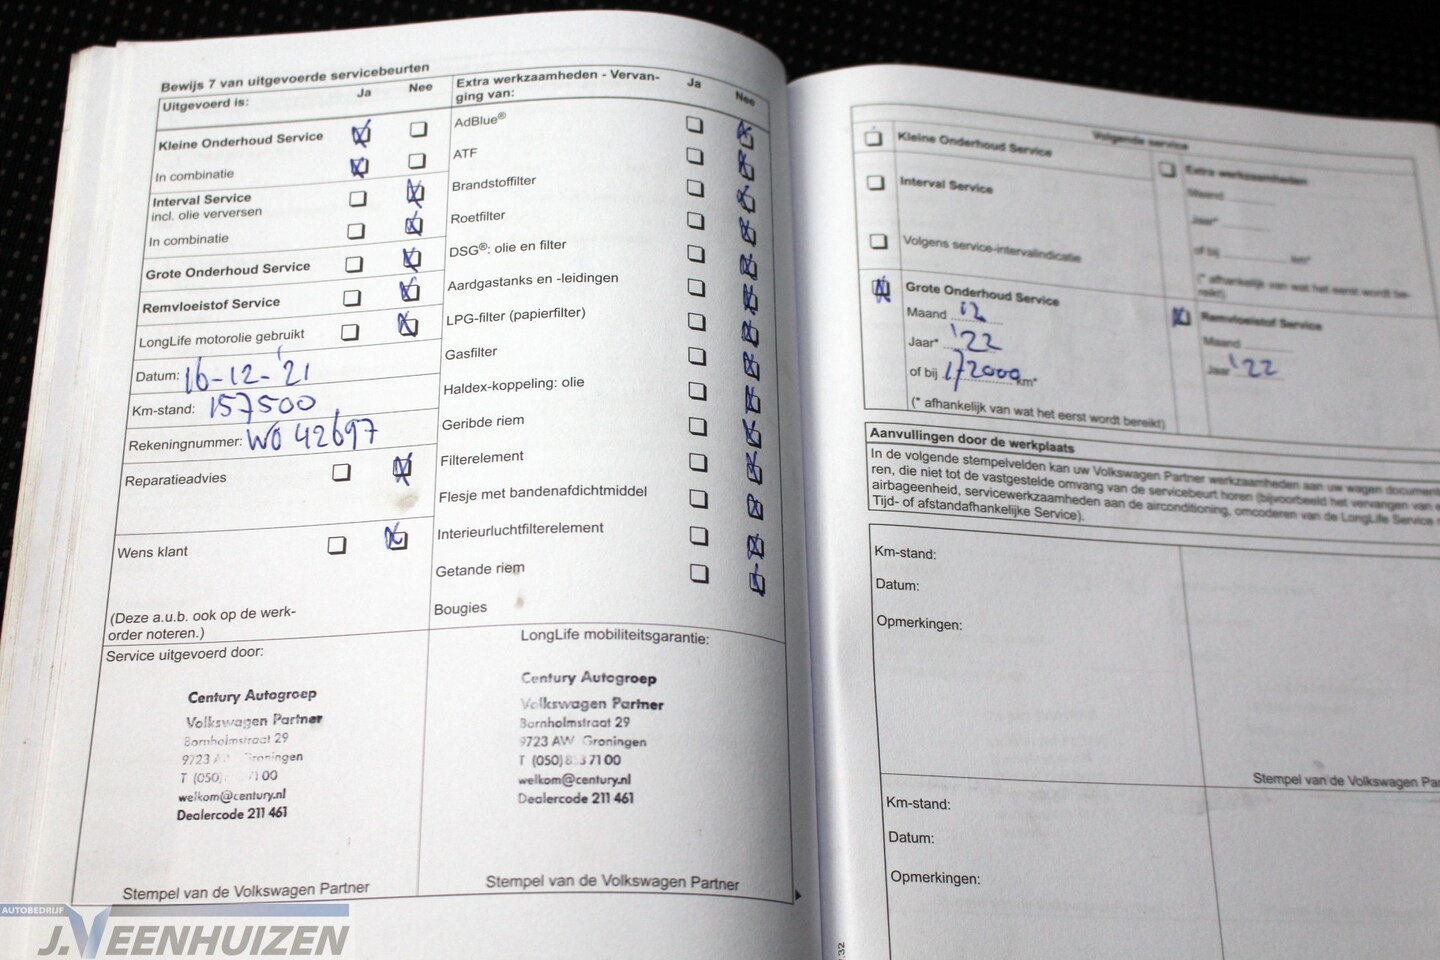 Bewijs 7 van uitgevoerde servicebeurten
Uitgevoerd is: Ja Nee
Kleine Onderhoud Service
In combinatie
Interval Service
incl. olie verversen
In combinatie
Grote Onderhoud Service
Remvloeistof Service
LongLife motorolie gebruikt
Datum: 16-12-'21
Km-stand: 157500
Rekeningnummer: WO 42697
Reparatieadvies
Wens klant
(Deze a.u.b. ook op de werk-
order noteren.)
Extra werkzaamheden - Vervan-
ging van: Ja Nee
AdBlue®
ATF
Brandstoffilter
Roetfilter
DSG®: olie en filter
Aardgastanks en -leidingen
LPG-filter (papierfilter)
Gasfilter
Haldex-koppeling: olie
Geribde riem
Filterelement
Flesje met bandenafdichtmiddel
Interieurluchtfilterelement
Getande riem
Bougies
Service uitgevoerd door:
Century Autogroep
Volkswagen Partner
Bornholmstraat 29
9723 Groningen
T (050) 71 00
welkom@century.nl
Dealercode 211 461
Stempel van de Volkswagen Partner
LongLife mobiliteitsgarantie:
Century Autogroep
Volkswagen Partner
Bornholmstraat 29
9723 AW Groningen
T (050) 71 00
welkom@century.nl
Dealercode 211 461
Stempel van de Volkswagen Partner
Volgende service
Kleine Onderhoud Service
Interval Service
Volgens service-intervalindicatie
Grote Onderhoud Service
Maand 12
Jaar* '22
of bij 172000 km*
(* afhankelijk van wat het eerst wordt bereikt)
Extra werkzaamheden
Maand
Jaar*
of bij km*
(* afhankelijk van wat het eerst wordt be-
reikt)
Remvloeistof Service
Maand
Jaar '22
Aanvullingen door de werkplaats
In de volgende stempelvelden kan uw Volkswagen Partner werkzaamheden aan uw wagen document
ren, die niet tot de vastgestelde omvang van de servicebeurt horen (bijvoorbeeld het vervangen van e
airbageenheid, servicewerkzaamheden aan de airconditioning, omcoderen van de LongLife Service
Tijd- of afstandafhankelijke Service).
Km-stand:
Datum:
Opmerkingen:
Stempel van de Volkswagen Par
Km-stand:
Datum:
Opmerkingen:
AUTOBEDRIJF
J.VEENHUIZEN